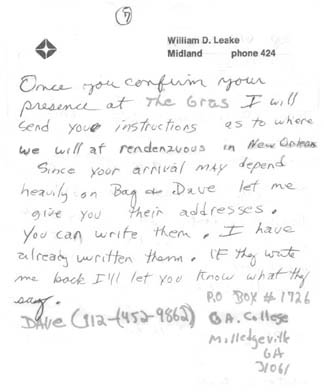 7
William D. Leake
Midland phone 424
Once you confirm your
presence at The Gras I will
send you instructions as to where
we will at rendenzvous in New Orleans
Since your arrival may depend
heavily on Bag or Dave let me
give you their addresses.
You can write them. I have
already written them. IF they write
me back I'll let you know what they
say.
P.O BOX # 1726
DAVE (912-(452-9862)
GA. College
Milledgeville
GA
31061